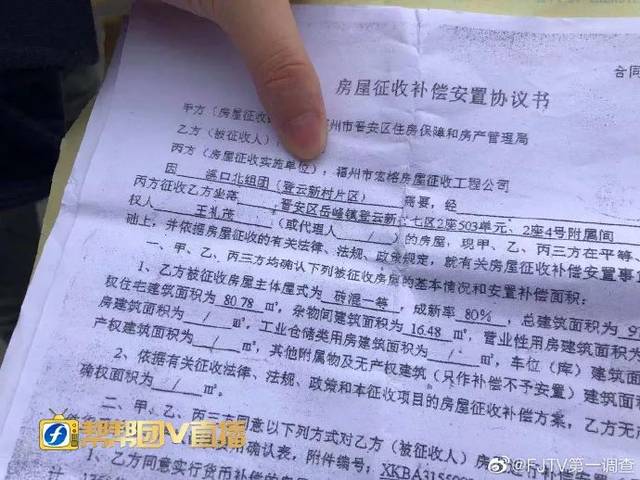 合同
房屋征收补偿安置协议书
甲方（房屋征收 州市晋安区住房保障和房产管理局
乙方（被征收人）
丙方（房屋征收实施单位）：福州市宏格房屋征收工程公司
因 溪口北组团（登云新村片区） 需要，经
丙方征收乙方坐落 晋安区岳峰镇登云新 七区2座503单元、2座4号附属间
权人 王礼茂 （或代理人 / ）的房屋，现甲、乙、丙三方在平等、
础上，并依据房屋征收的有关法律、法规、政策规定，就有关房屋征收补偿安置事
一、甲、乙、丙三方均确认下列被征收房屋的基本情况和安置补偿面积：
1、乙方被征收房屋主体屋式为 砖混一等，成新率 80%，总建筑面积为
权住宅建筑面积为 80.78 ㎡，杂物间建筑面积为 16.48 ㎡，营业性用房建筑面积
房建筑面积为 / ㎡，工业仓储类用房建筑面积为 / ㎡，车位（库）建筑面
产权建筑面积为 / ㎡，其他附属物及无产权建筑（只作补偿不予安置）建筑面
2、依据有关征收法律、法规、政策和本征收项目的房屋征收补偿方案，乙方无产
确权面积为 / ㎡。
二、甲、乙、丙三方同意以下列方式对乙方（被征收人）房
用确认表，附件编号：XKBA315
1、乙方同意实行货币补偿的房
帮帮团V直播
@FJTV第一调查